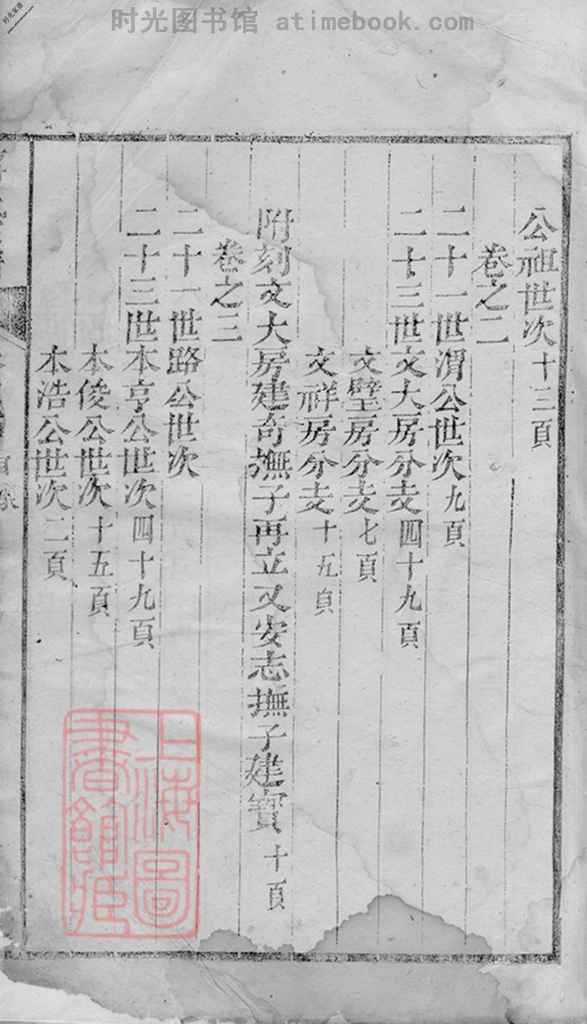 时光图书馆 atimebook.com
公祖世次十三頁
卷之二
二十一世渭公世次九頁
二十三世文大房分支四十九頁
文璧房分支七頁
文祥房分支十五頁
附刻文大房建奇撫子再立又安志撫子建寶十頁
卷之三
二十一世路公世次
二十三世本亨公世次四十九頁
本俊公世次十五頁
本浩公世次二頁
上海圖書館藏